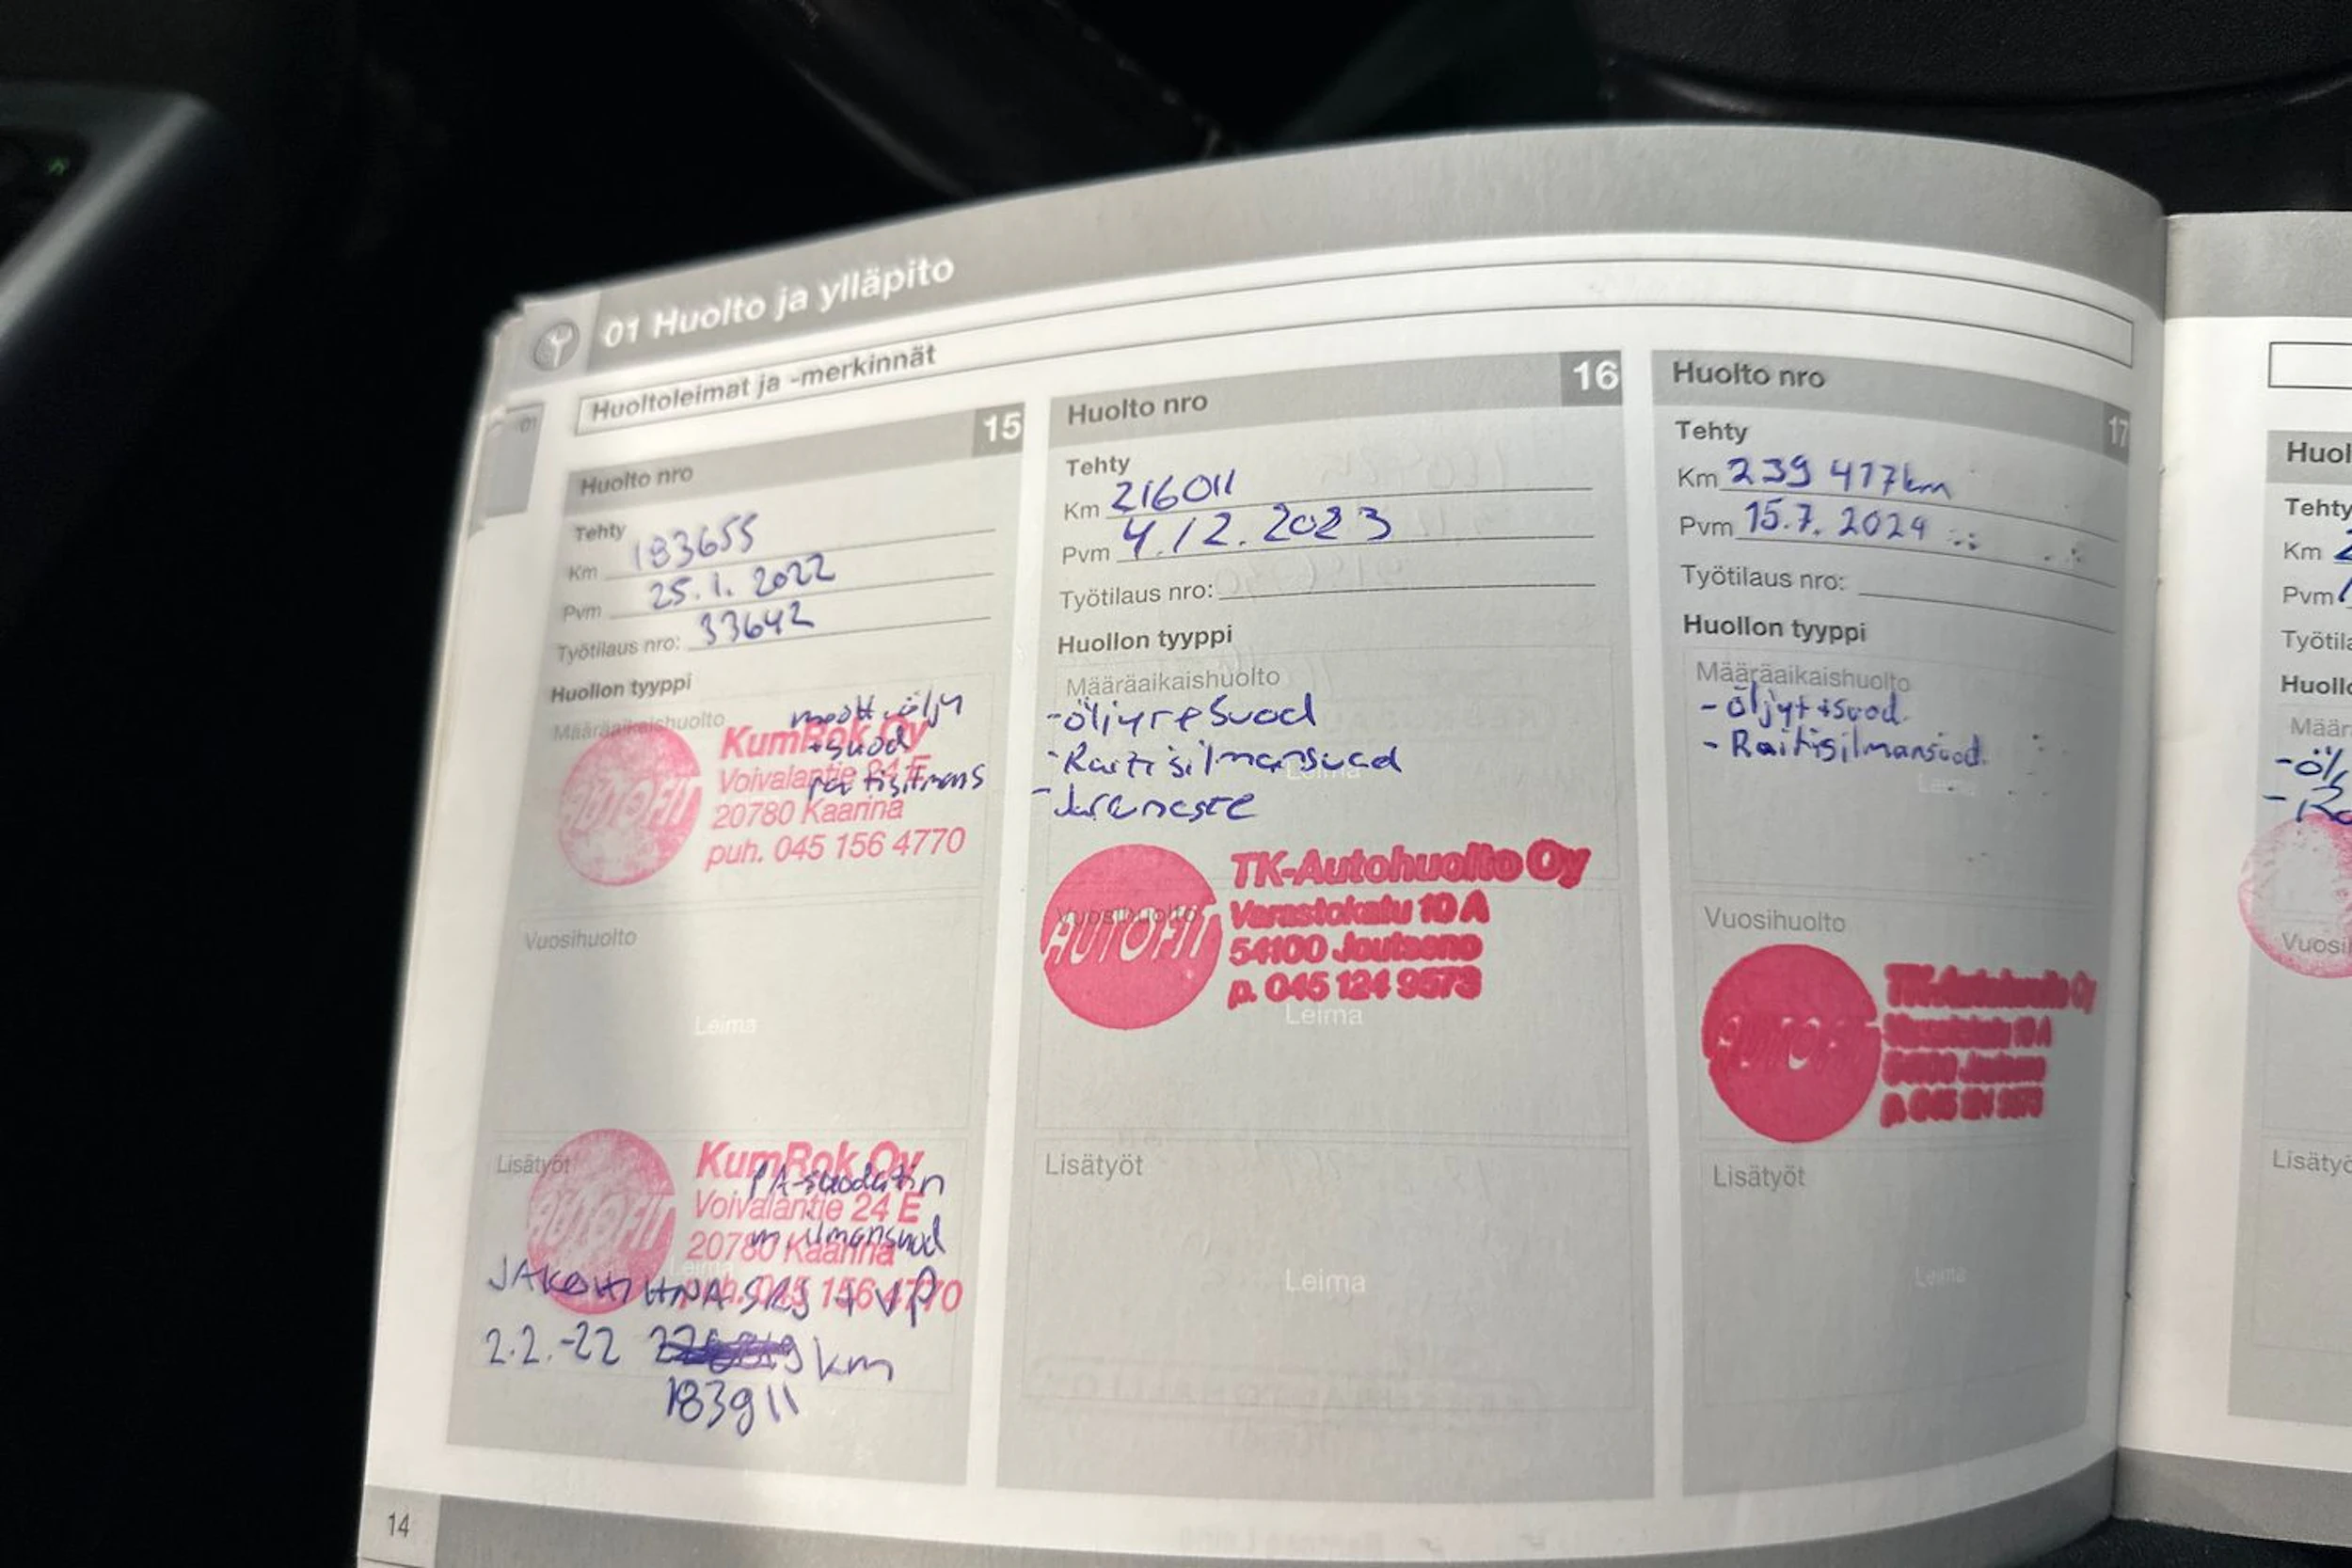 01 Huolto ja ylläpito
Huoltoleimat ja -merkinnät
01
15
Huolto nro
Tehty
Km 183655
Pvm 25.1. 2022
Työtilaus nro: 33642
Huollon tyyppi
Määräaikaishuolto
moott.öljy
+suod
AUTOFIT
KumRok Oy
Voivalantie 24 E
20780 Kaarina
puh. 045 156 4770
Vuosihuolto
Leima
Lisätyöt
AUTOFIT
KumRok Oy
Voivalantie 24 E
20780 Kaarina
puh. 045 156 4770
PA-suodatin
m.ilmansuod
Leima
JAKOHIHNA SRJ + VP
2.2.-22 km
183911
14
16
Huolto nro
Tehty
Km 216011
Pvm 4.12.2023
Työtilaus nro:
Huollon tyyppi
Määräaikaishuolto
-öljyt+suod
-Raitisilmansuod
Leima
-Jarruneste
AUTOFIT
TK-Autohuolto Oy
Varastokatu 10 A
54100 Joutseno
p. 045 124 9573
Vuosihuolto
Leima
Lisätyöt
Leima
17
Huolto nro
Tehty
Km 239 417km
Pvm 15.7. 2024
Työtilaus nro:
Huollon tyyppi
Määräaikaishuolto
- öljyt+suod.
- Raitisilmansuod.
Leima
Vuosihuolto
AUTOFIT
TK-Autohuolto Oy
Varastokatu 10 A
54100 Joutseno
p. 045 124 9573
Lisätyöt
Leima
Huol
Tehty
Km 2
Pvm
Työtila
Huollo
Määr
-öl
- Ra
Vuosi
Lisätyö